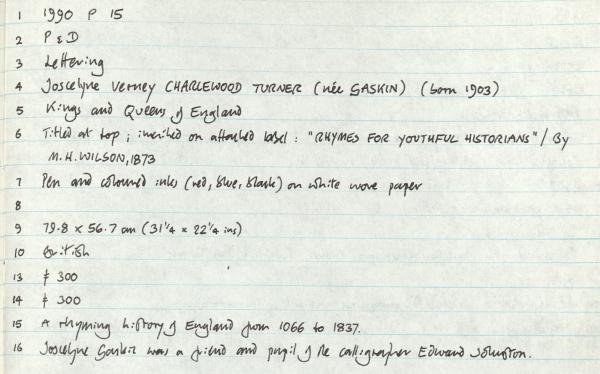 1 1990 P 15
2 P & D
3 Lettering
4 Joscelyne Verney CHARLEWOOD TURNER (née GASKIN) (born 1903)
5 Kings and Queens of England
6 Titled at top; inscribed on attached label: "RHYMES FOR YOUTHFUL HISTORIANS" / By
M.H. WILSON, 1873
7 Pen and coloured inks (red, blue, black) on white wove paper
8
9 79.8 x 56.7 cm (31 1/4 x 22 1/4 ins)
10 British
13 £ 300
14 £ 300
15 A rhyming history of England from 1066 to 1837.
16 Joscelyne Gaskin was a friend and pupil of the calligrapher Edward Johnston.